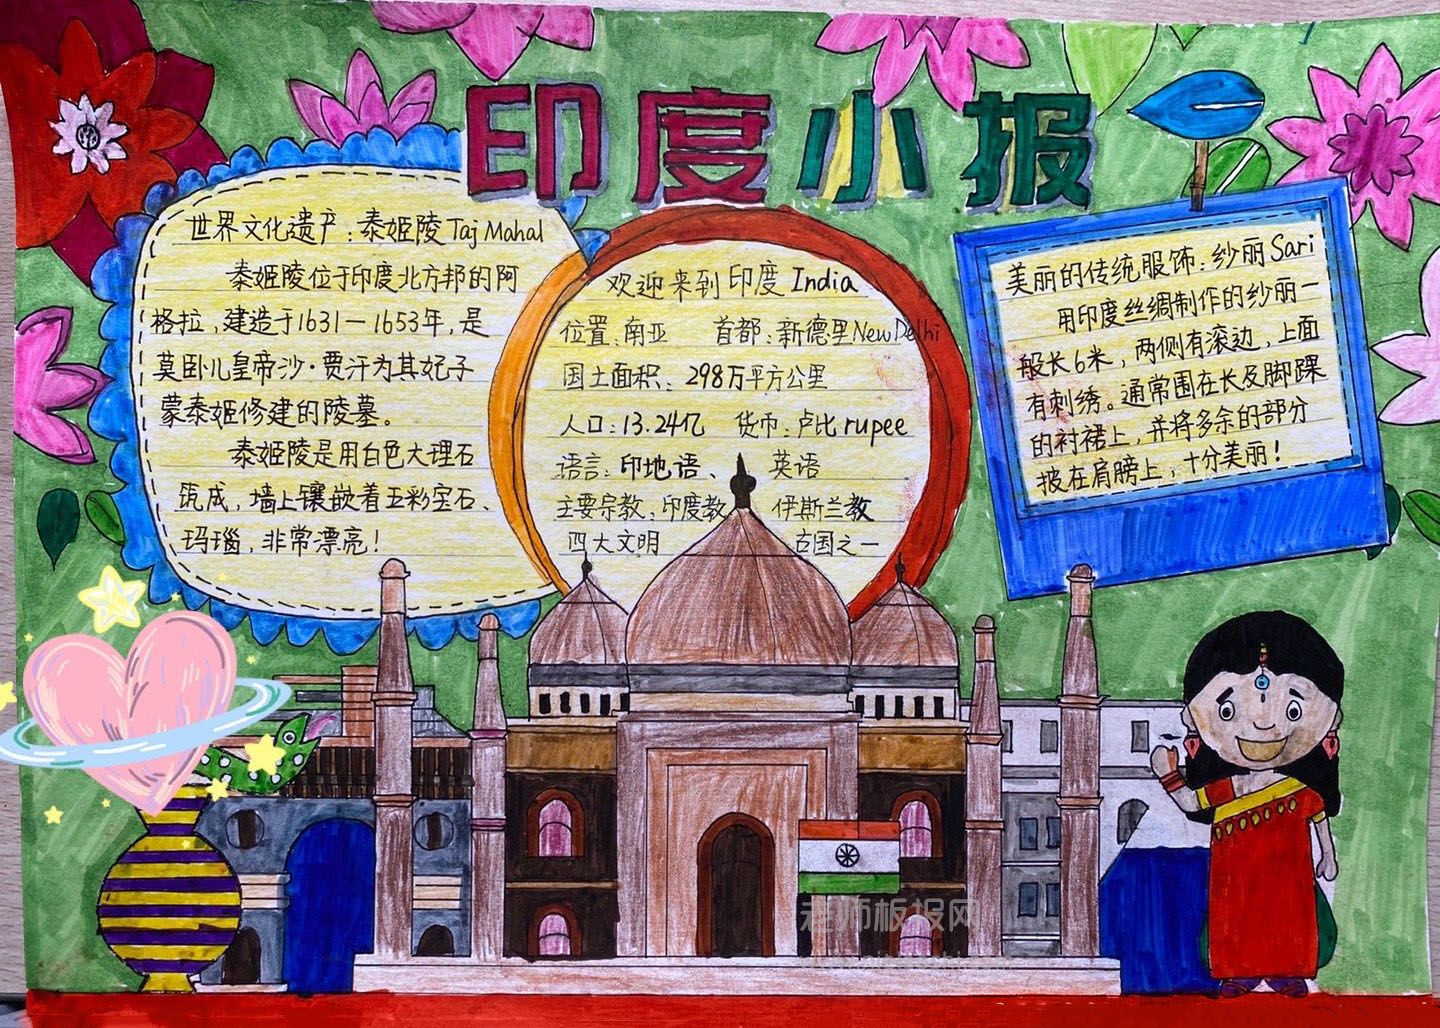 印度小报
世界文化遗产：泰姬陵 Taj Mahal
泰姬陵位于印度北方邦的阿
格拉，建造于1631—1653年，是
莫卧儿皇帝沙·贾汗为其妃子
蒙泰姬修建的陵墓。
泰姬陵是用白色大理石
筑成，墙上镶嵌着五彩宝石、
玛瑙，非常漂亮！
欢迎来到印度 India
位置：南亚 首都：新德里 New Delhi
国土面积：298万平方公里
人口：13.24亿 货币：卢比 rupee
语言：印地语、 英语
主要宗教：印度教 伊斯兰教
四大文明 古国之一
美丽的传统服饰：纱丽 Sari
用印度丝绸制作的纱丽一
般长6米，两侧有滚边，上面
有刺绣。通常围在长及脚踝
的衬裙上，并将多余的部分
披在肩膀上，十分美丽！
老师板报网